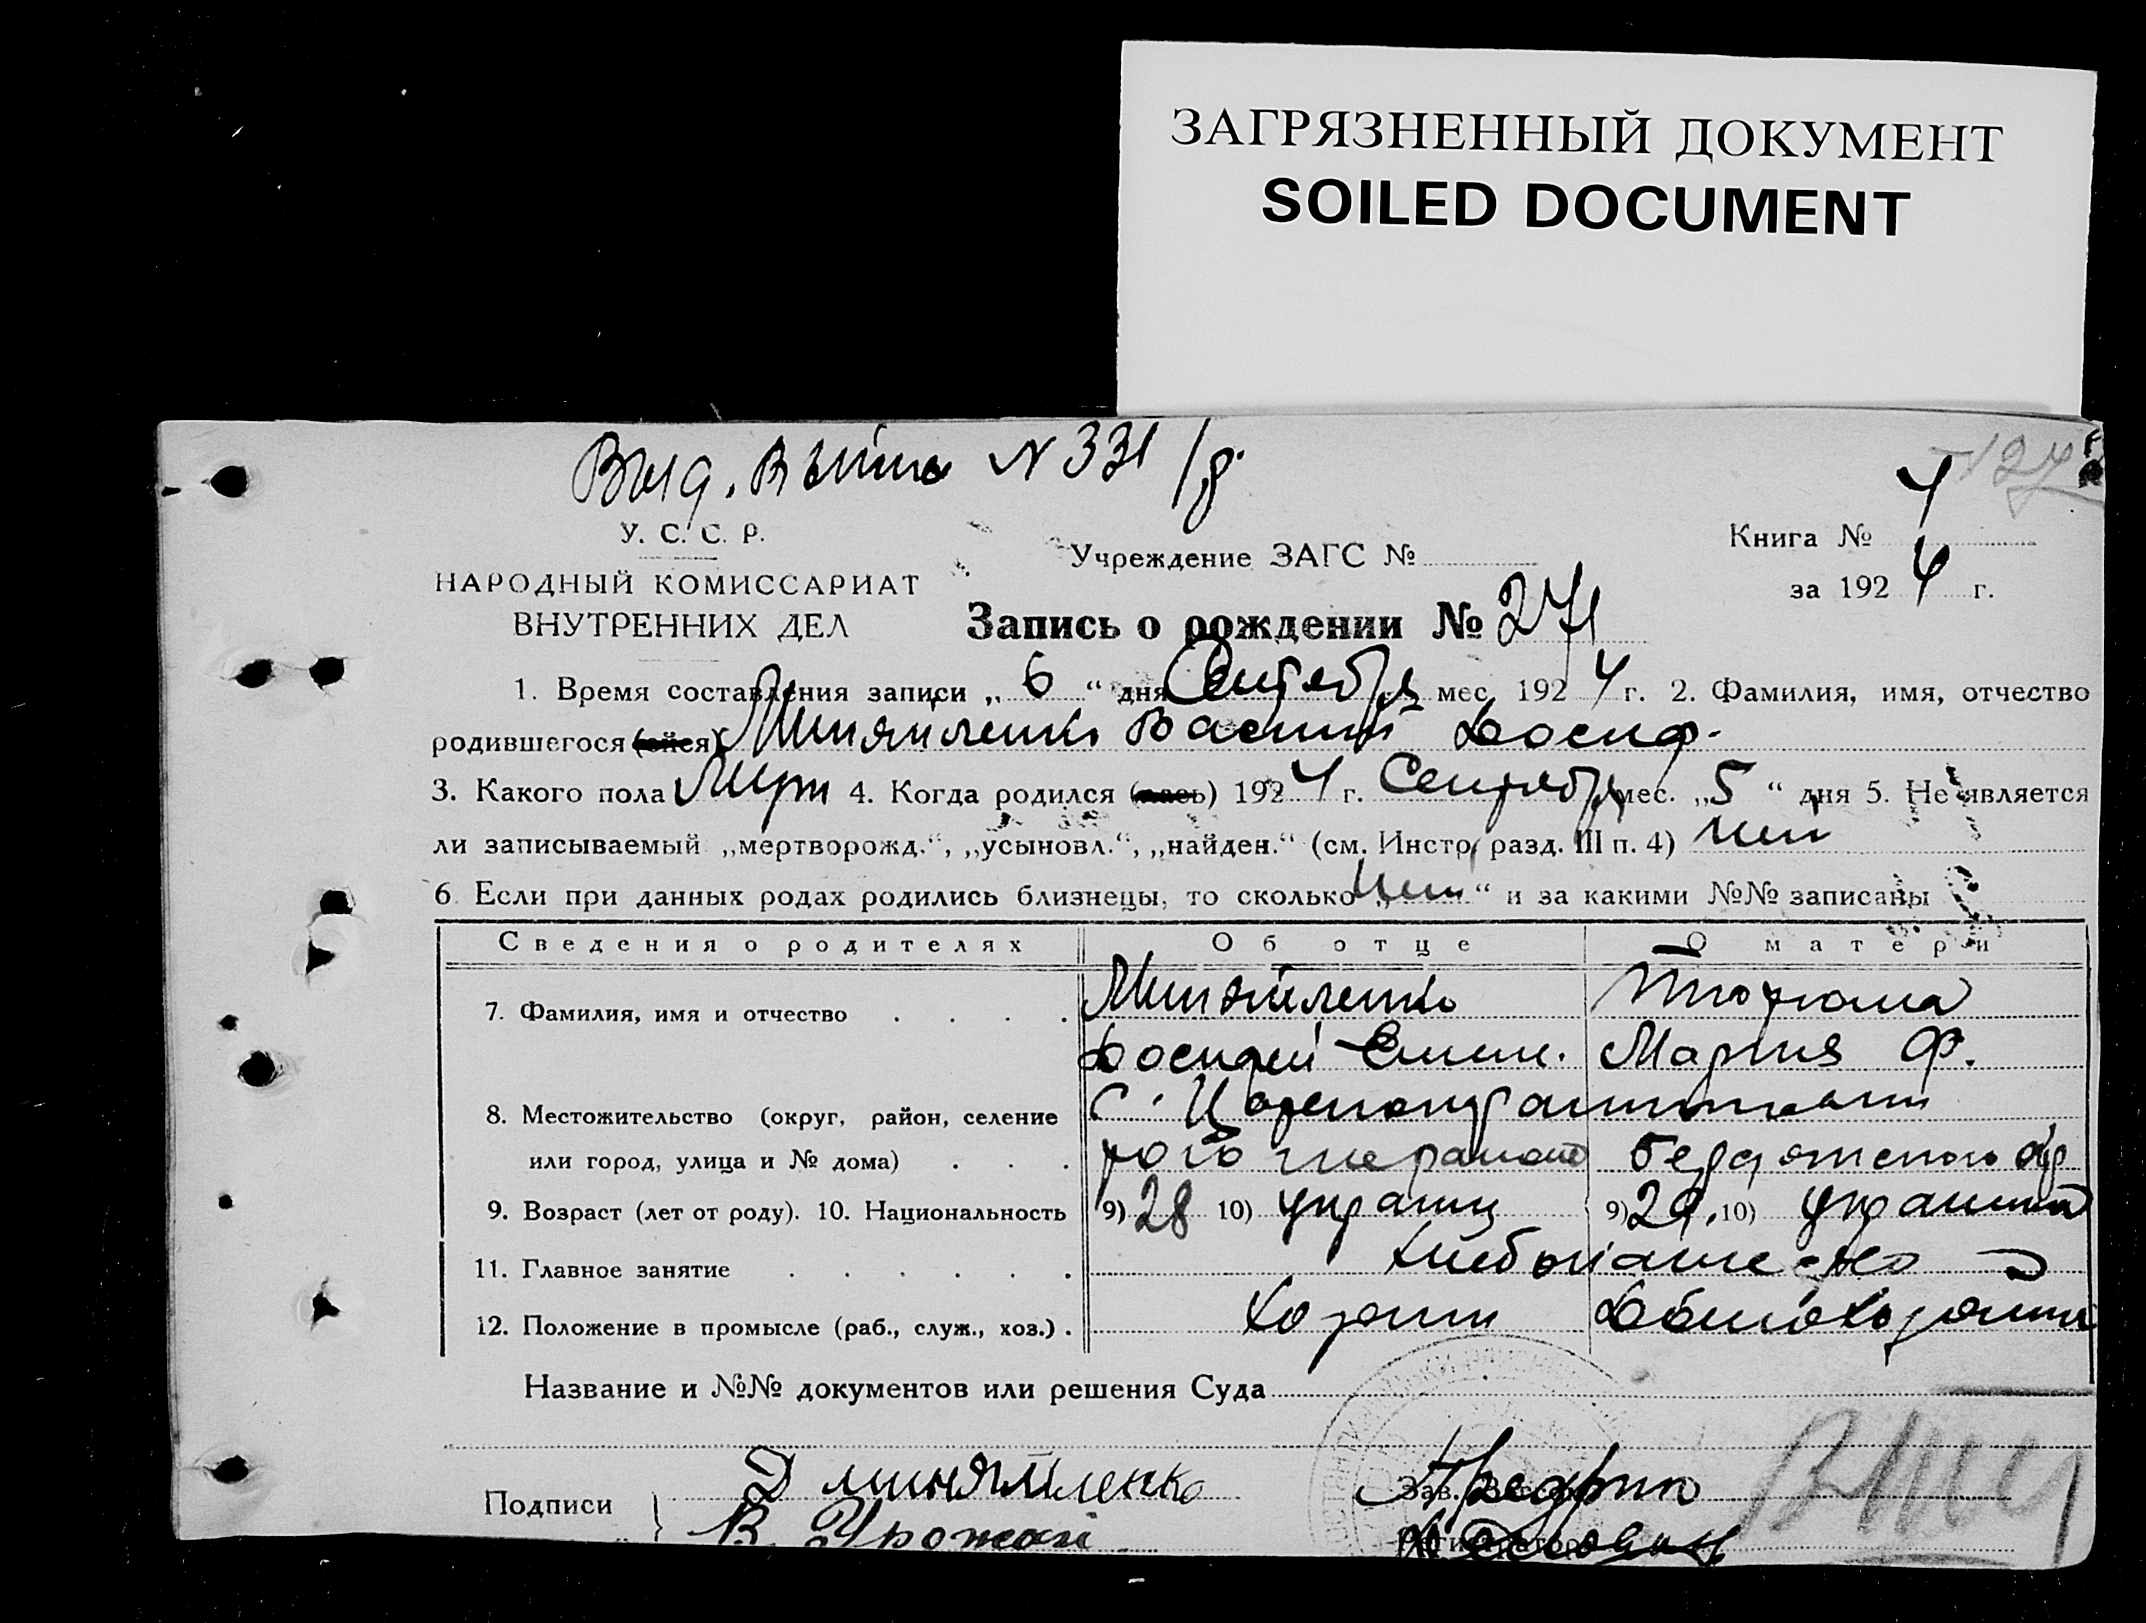 ЗАГРЯЗНЕННЫЙ ДОКУМЕНТ
SOILED DOCUMENT
Выд. N 331
У. С. С. Р.
НАРОДНЫЙ КОМИССАРИАТ
ВНУТРЕННИХ ДЕЛ
Учреждение ЗАГС №
Книга №
за 1924 г.
Запись о рождении № 271
1. Время составления записи „ 6 “ дня Сентября мес. 1924 г. 2. Фамилия, имя, отчество
родившегося (ейся) Миняйленко Василий Досиф.
3. Какого пола Муж 4. Когда родился (лась) 1924 г. Сентября мес. „5“ дня 5. Не является
ли записываемый „мертворожд.“, „усыновл.“, „найден.“ (см. Инстр. разд. III п. 4) нет
6. Если при данных родах родились близнецы, то сколько „нет“ и за какими №№ записаны
Сведения о родителях Об отце О матери
7. Фамилия, имя и отчество . . . . Миняйленко
Досифей Мария Ф.
8. Местожительство (округ, район, селение С. Цареконстантиновки
или город, улица и № дома) . . . района Бердянского окр
9. Возраст (лет от роду). 10. Национальность 9) 28 10) украин 9) 29. 10) украинка
11. Главное занятие . . . . . . хлебопашество
12. Положение в промысле (раб., служ., хоз.) . хозяин Домохозяйка
Название и №№ документов или решения Суда
Подписи Д Миняйленко
В.
Зав.
Регистратор